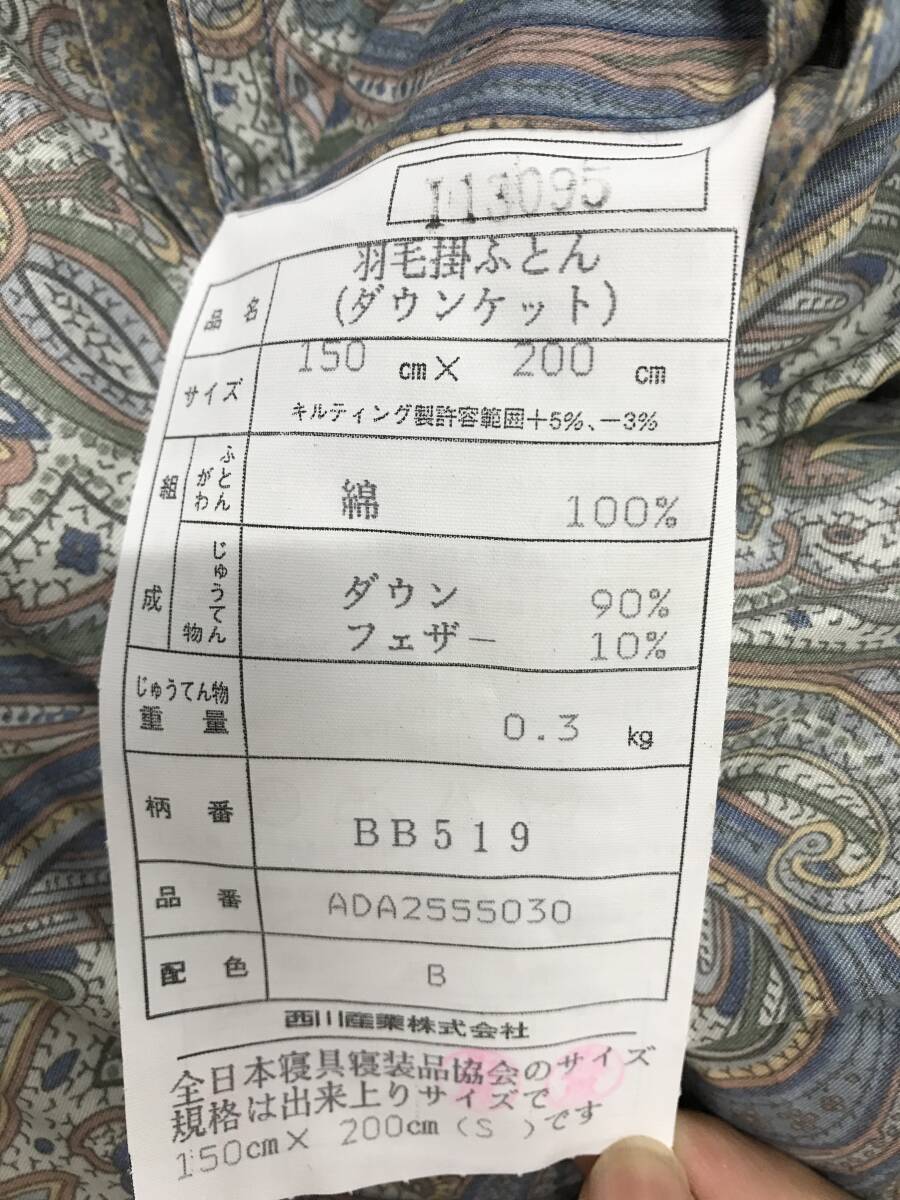 I13095
品名
羽毛掛ふとん
(ダウンケット)
サイズ
150 cm× 200 cm
キルティング製許容範囲+5%、-3%
組成
ふとんがわ
綿 100%
じゅうてん物
ダウン 90%
フェザー 10%
じゅうてん物
重量
0.3 kg
柄番
BB519
品番
ADA2555030
配色
B
西川産業株式会社
全日本寝具寝装品協会のサイズ
規格は出来上りサイズで
150cm× 200cm(S )です